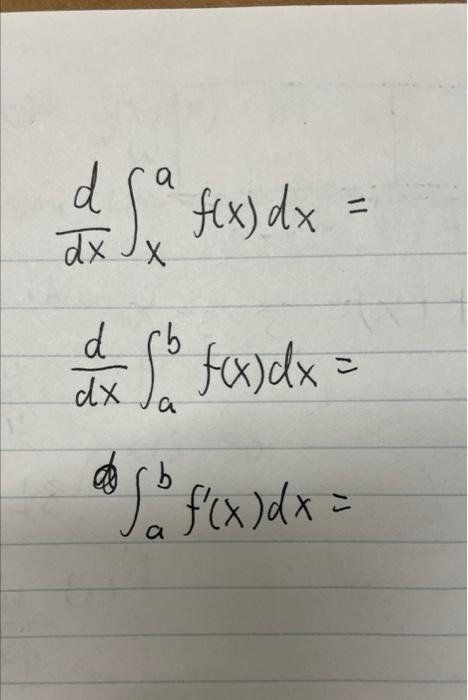 d/dx ∫ₓᵃ f(x) dx =
d/dx ∫ₐᵇ f(x) dx =
∫ₐᵇ f'(x) dx =